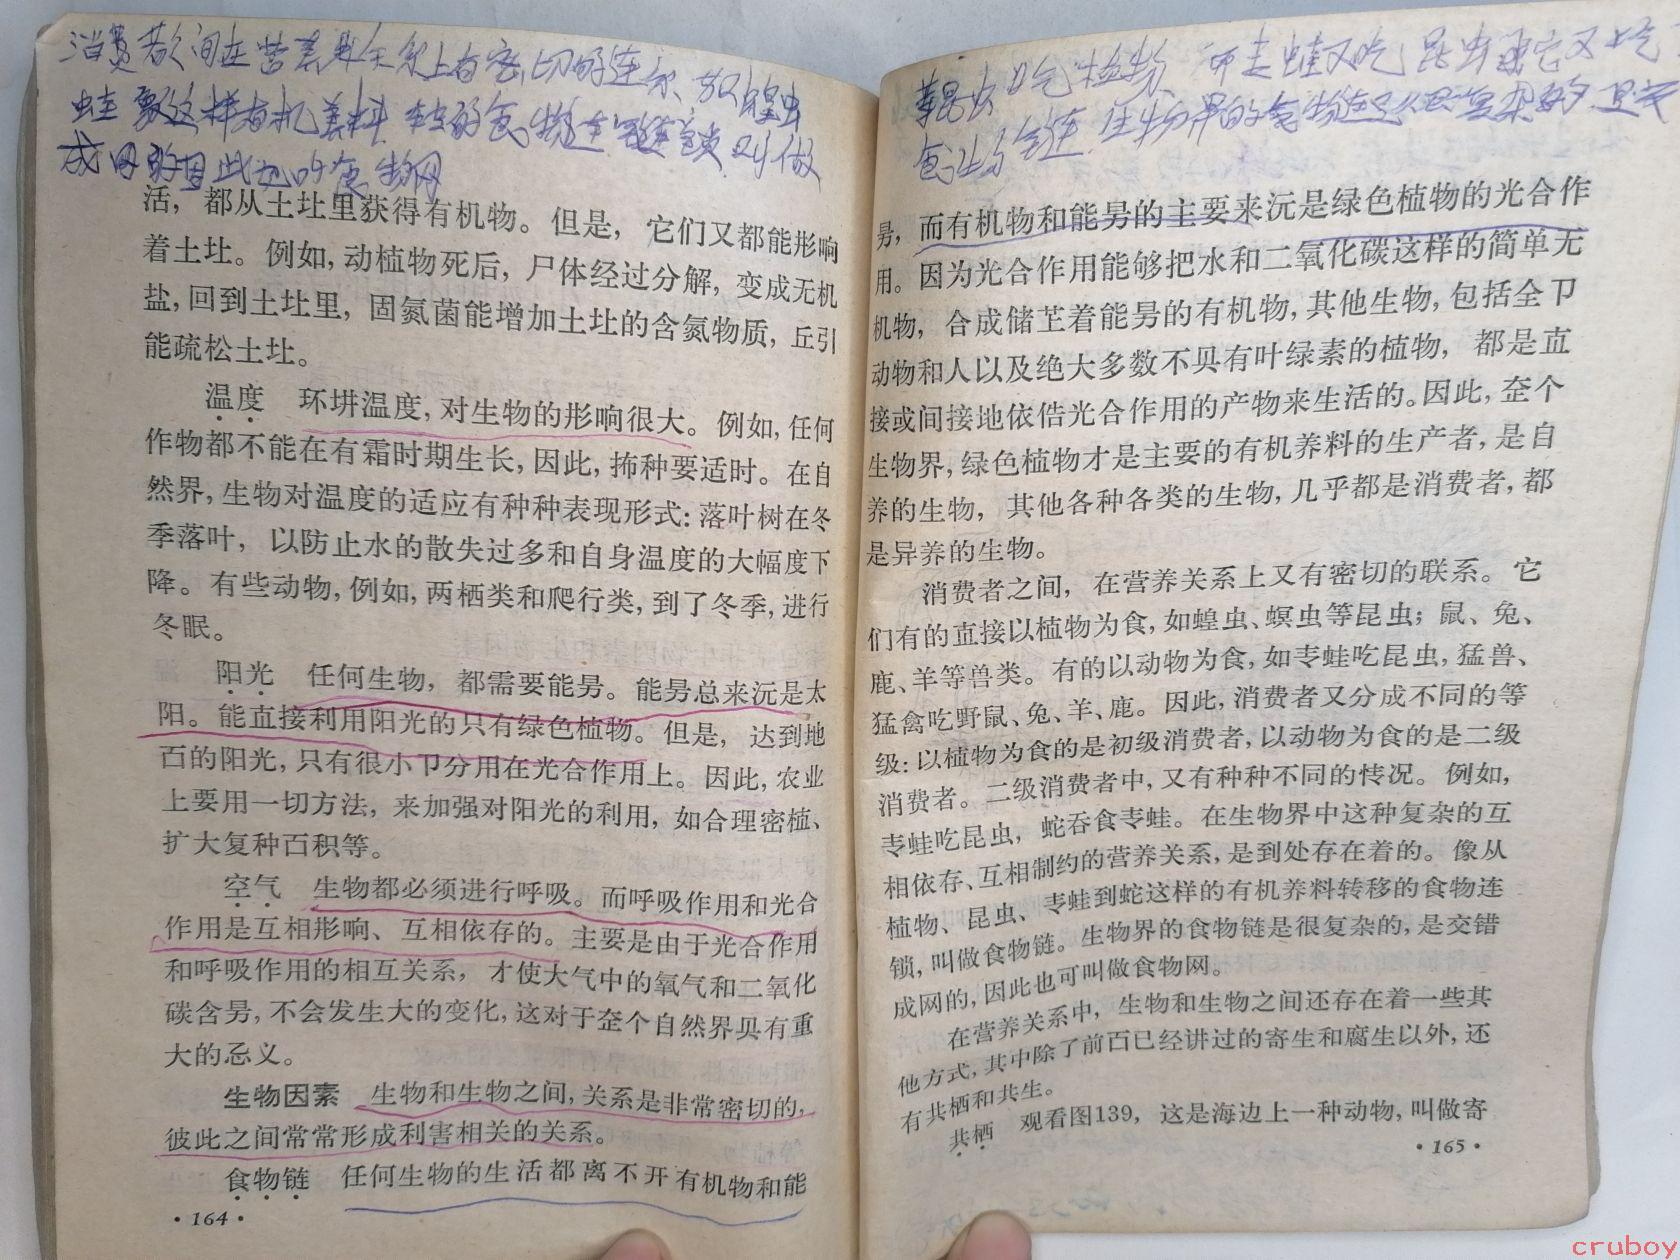 消费者之间在营养关系上有密切的连系
蛙 象这样有机养料 的食物连 叫做
成网的因此也叫食物网
昆虫吃植物 而青蛙又吃昆虫 它又
生物界的食物连是很复杂的
活，都从土圵里获得有机物。但是，它们又都能形响
着土圵。例如，动植物死后，尸体经过分解，变成无机
盐，回到土圵里，固氮菌能增加土圵的含氮物质，丘引
能疏松土圵。
温度 环境温度，对生物的形响很大。例如，任何
作物都不能在有霜时期生长，因此，抪种要适时。在自
然界，生物对温度的适应有种种表现形式：落叶树在冬
季落叶，以防止水的散失过多和自身温度的大幅度下
降。有些动物，例如，两栖类和爬行类，到了冬季，进行
冬眠。
阳光 任何生物，都需要能量。能量总来沅是太
阳。能直接利用阳光的只有绿色植物。但是，达到地
面的阳光，只有很小卩分用在光合作用上。因此，农业
上要用一切方法，来加强对阳光的利用，如合理密植、
扩大复种面积等。
空气 生物都必须进行呼吸。而呼吸作用和光合
作用是互相形响、互相依存的。主要是由于光合作用
和呼吸作用的相互关系，才使大气中的氧气和二氧化
碳含量，不会发生大的变化，这对于整个自然界具有重
大的意义。
生物因素 生物和生物之间，关系是非常密切的，
彼此之间常常形成利害相关的关系。
食物链 任何生物的生活都离不开有机物和能
·164·
量，而有机物和能量的主要来沅是绿色植物的光合作
用。因为光合作用能够把水和二氧化碳这样的简单无
机物，合成储芷着能量的有机物，其他生物，包括全卩
动物和人以及绝大多数不具有叶绿素的植物，都是直
接或间接地依俈光合作用的产物来生活的。因此，整个
生物界，绿色植物才是主要的有机养料的生产者，是自
养的生物，其他各种各类的生物，几乎都是消费者，都
是异养的生物。
消费者之间，在营养关系上又有密切的联系。它
们有的直接以植物为食，如蝗虫、螟虫等昆虫；鼠、兔、
鹿、羊等兽类。有的以动物为食，如青蛙吃昆虫，猛兽、
猛禽吃野鼠、兔、羊、鹿。因此，消费者又分成不同的等
级：以植物为食的是初级消费者，以动物为食的是二级
消费者。二级消费者中，又有种种不同的情况。例如，
青蛙吃昆虫，蛇吞食青蛙。在生物界中这种复杂的互
相依存、互相制约的营养关系，是到处存在着的。像从
植物、昆虫、青蛙到蛇这样的有机养料转移的食物连
锁，叫做食物链。生物界的食物链是很复杂的，是交错
成网的，因此也可叫做食物网。
在营养关系中，生物和生物之间还存在着一些其
他方式，其中除了前面已经讲过的寄生和腐生以外，还
有共栖和共生。
共栖 观看图139，这是海边上一种动物，叫做寄
·165·
cruboy